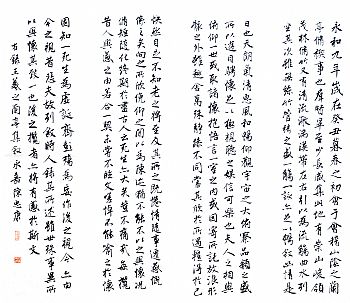 永和九年歲在癸丑暮春之初會于會稽山陰之蘭
亭脩稧事也群賢畢至少長咸集此地有崇山峻領
茂林脩竹又有清流激湍暎帶左右引以為流觴曲水列
坐其次雖無絲竹管弦之盛一觴一詠亦足以暢敘幽情是
日也天朗氣清惠風和暢仰觀宇宙之大俯察品類之盛
所以遊目騁懷足以極視聽之娛信可樂也夫人之相與
俯仰一世或取諸懷抱悟言一室之內或因寄所託放浪形
骸之外雖趣舍萬殊靜躁不同當其欣於所遇暫得於己
快然自足不知老之將至及其所之既惓情隨事遷感慨
係之矣向之所欣俛仰之間以為陳迹猶不能不以之興懷況
脩短隨化終期於盡古人云死生亦大矣豈不痛哉每攬
昔人興感之由若合一契未嘗不臨文嗟悼不能喻之於懷
固知一死生為虛誕齊彭殤為妄作後之視今亦由
今之視昔悲夫故列敘時人錄其所述雖世殊事異所
以興懷其致一也後之攬者亦將有感於斯文
右錄王羲之蘭亭集敘永嘉徐忠康